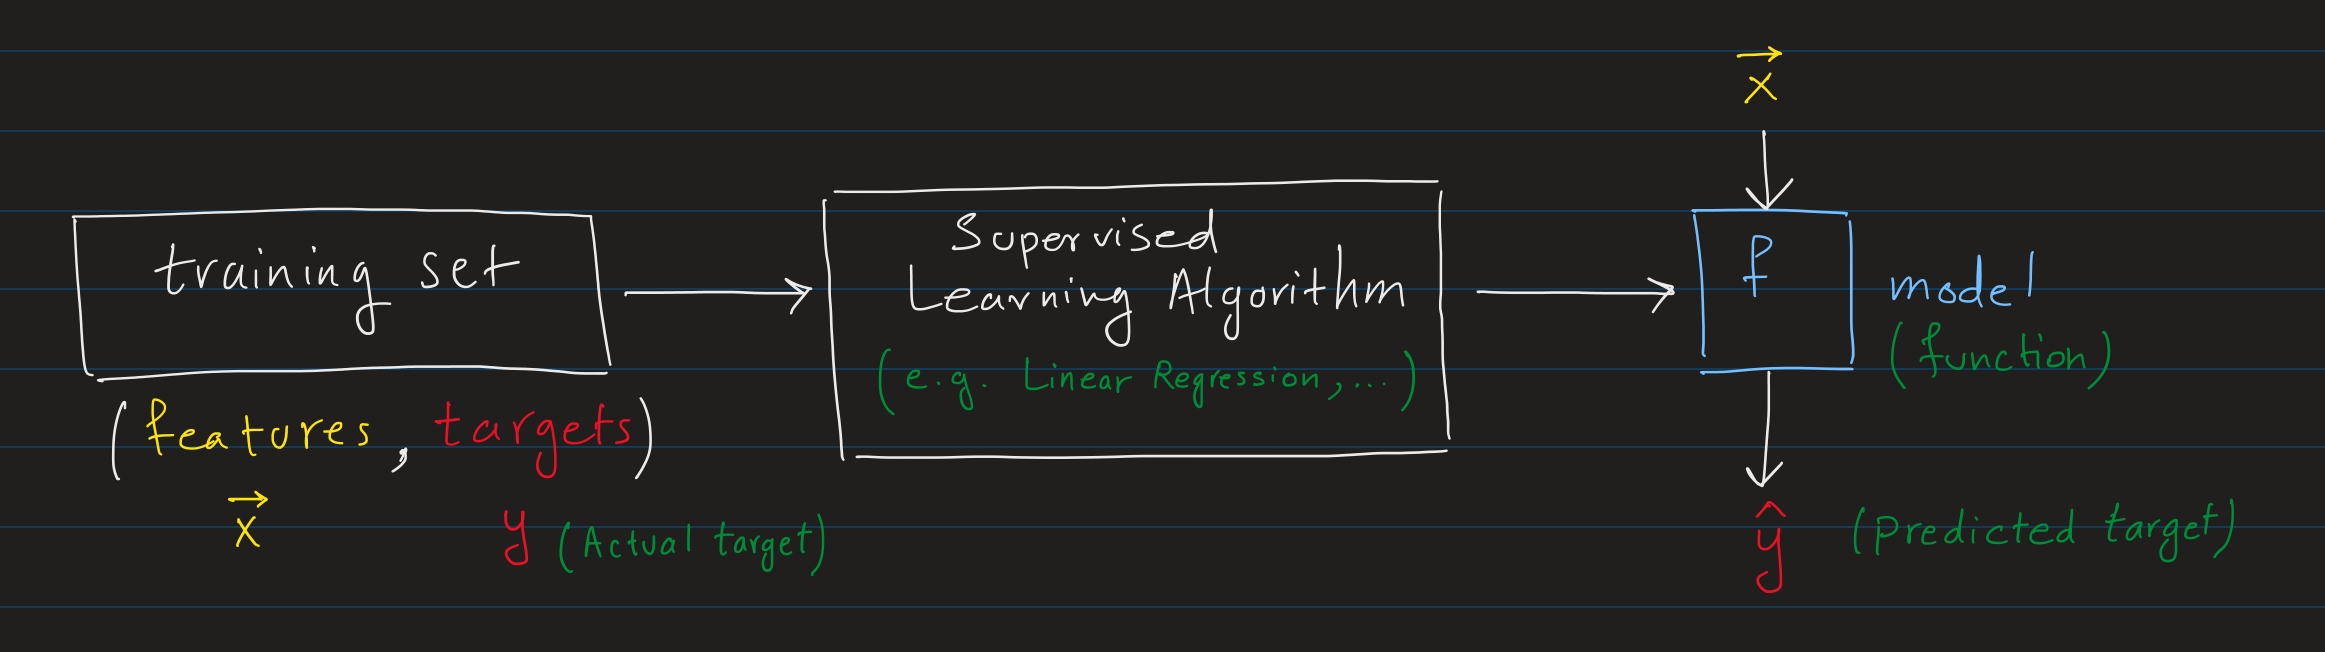 training set
(features, targets)
x⃗
y (Actual target)
Supervised
Learning Algorithm
(e.g. Linear Regression,...)
x⃗
f
model
(function)
ŷ (predicted target)